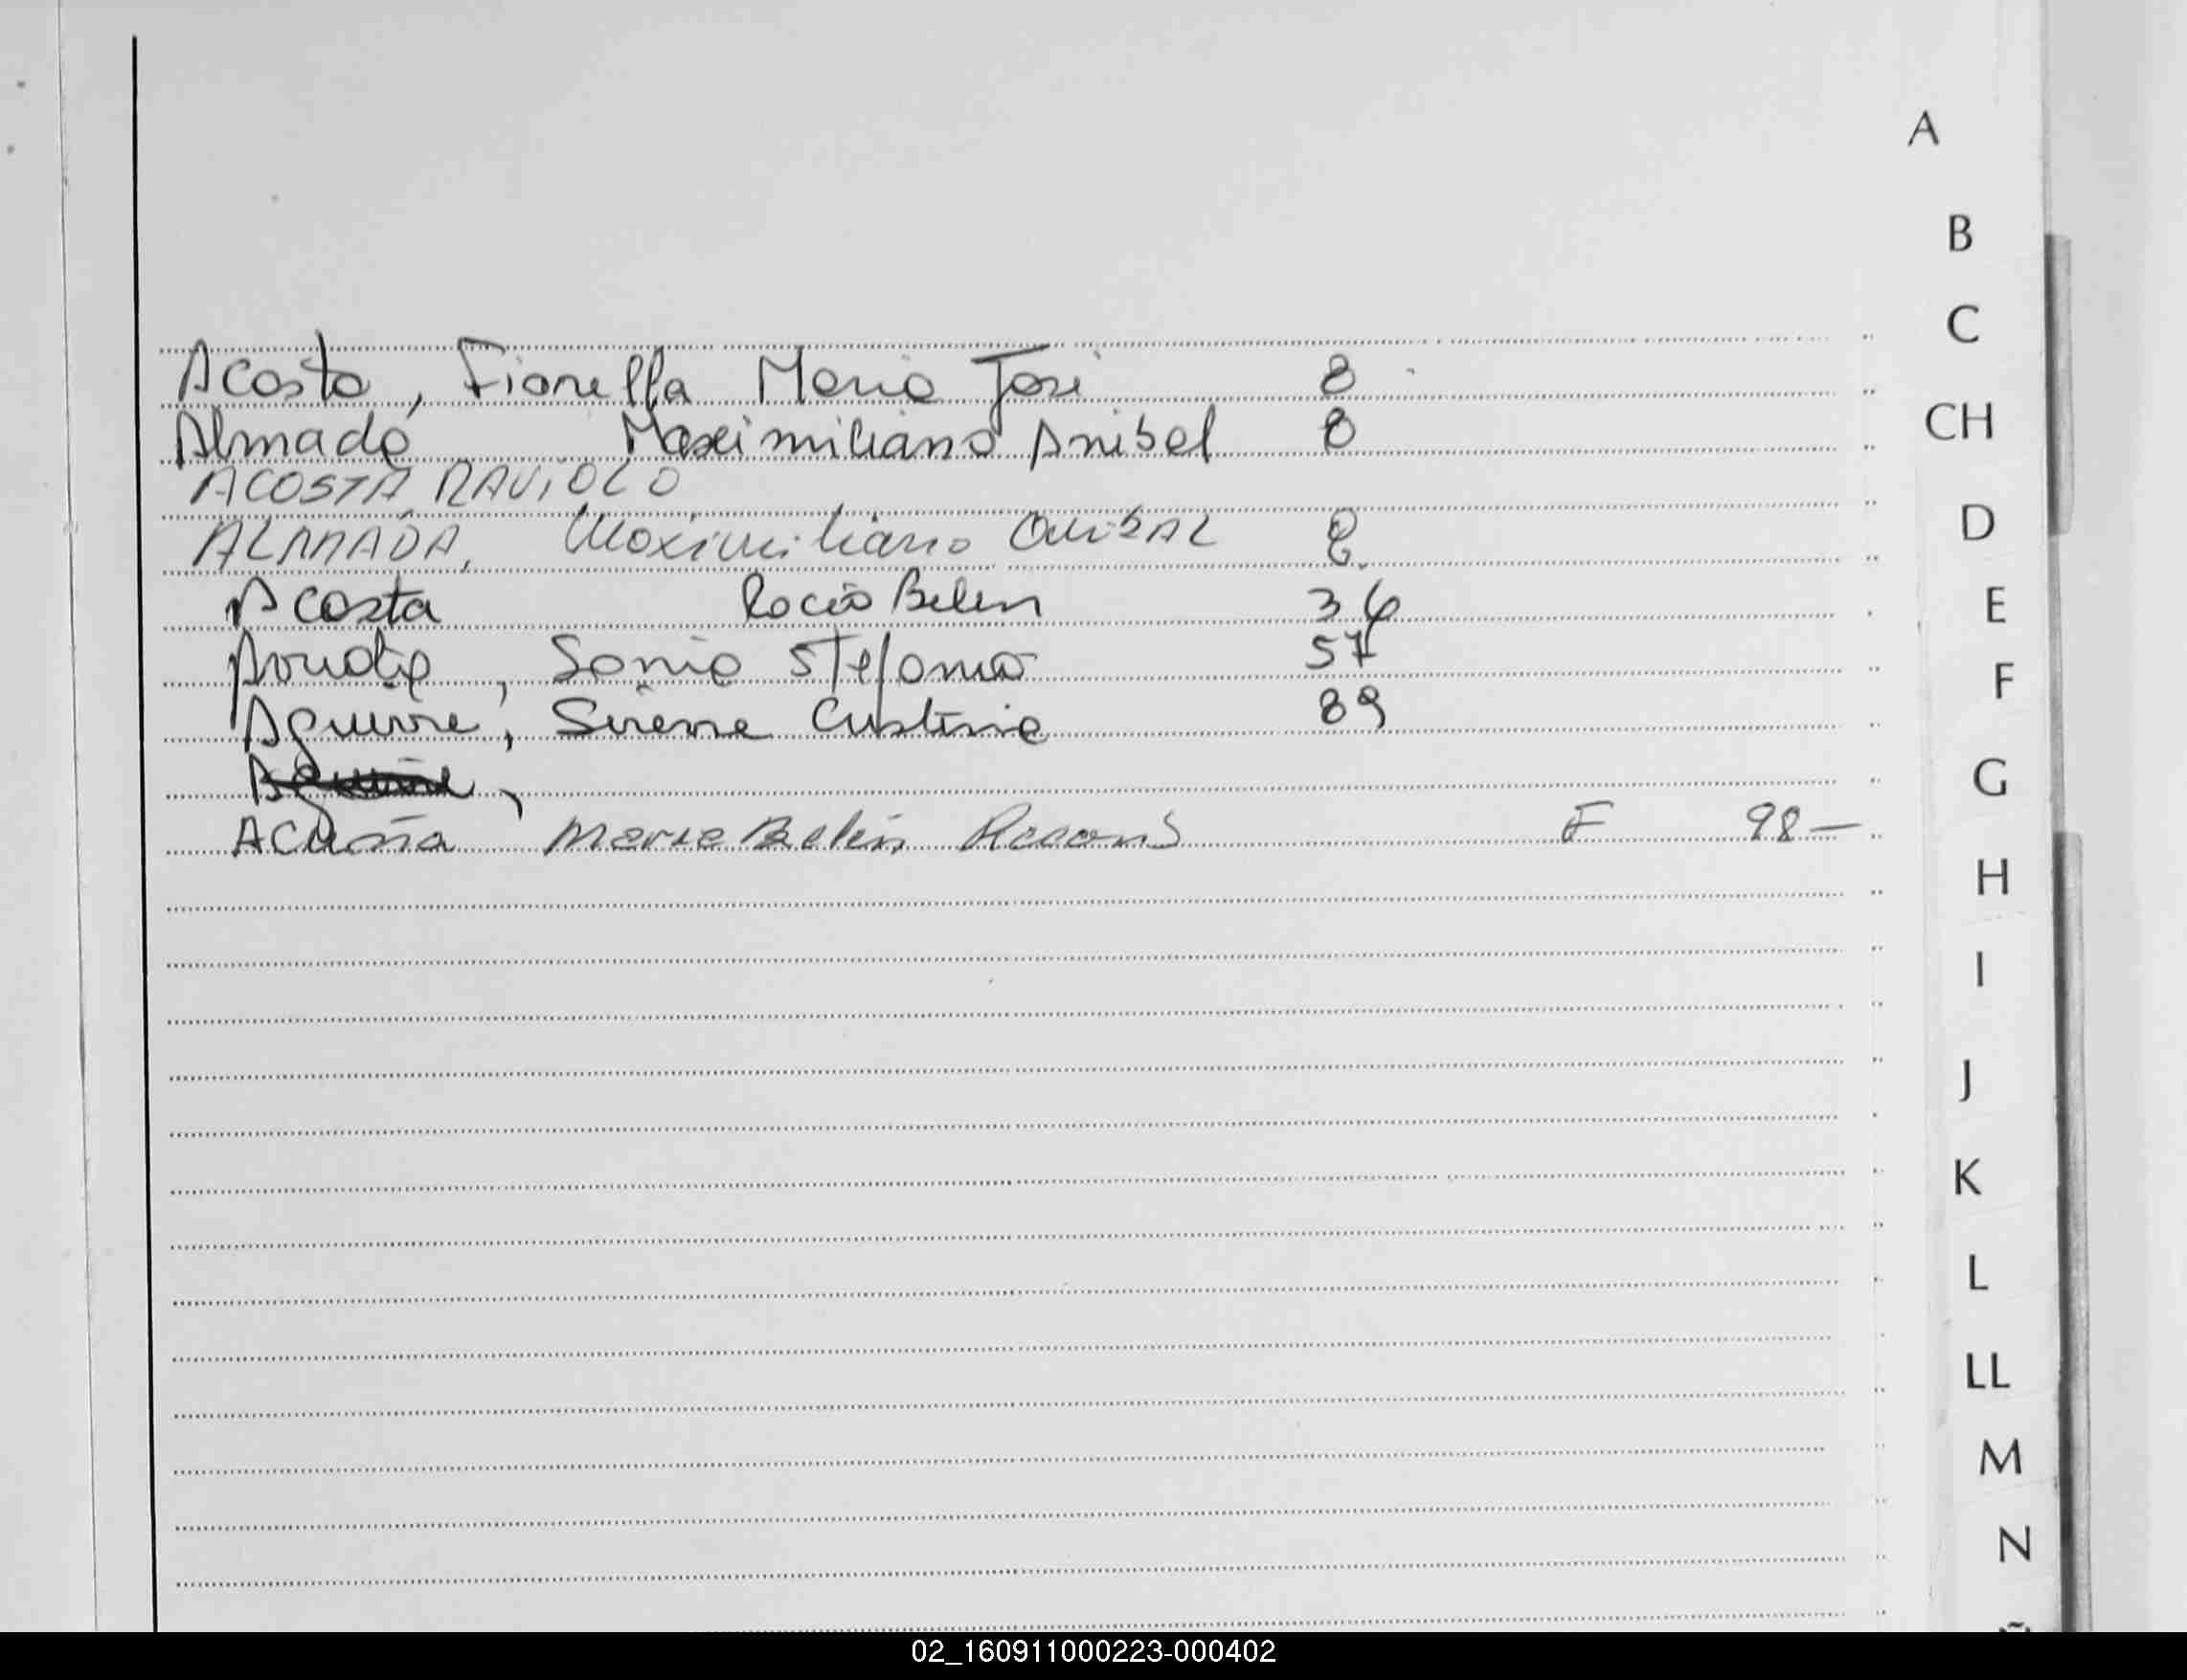 A
B
C
Acosta, Fiorella Maria José 8
CH
Almada Maximiliano Anibal 8
ACOSTA RAVIOLO
D
ALMADA, Maximiliano Anibal 8
E
Acosta Rocío Belen 36
F
Sonia Stefania 57
Aguirre, Cristina 89
G
Acuña Maria Belén F 98-
H
I
J
K
L
LL
M
N
02_160911000223-000402